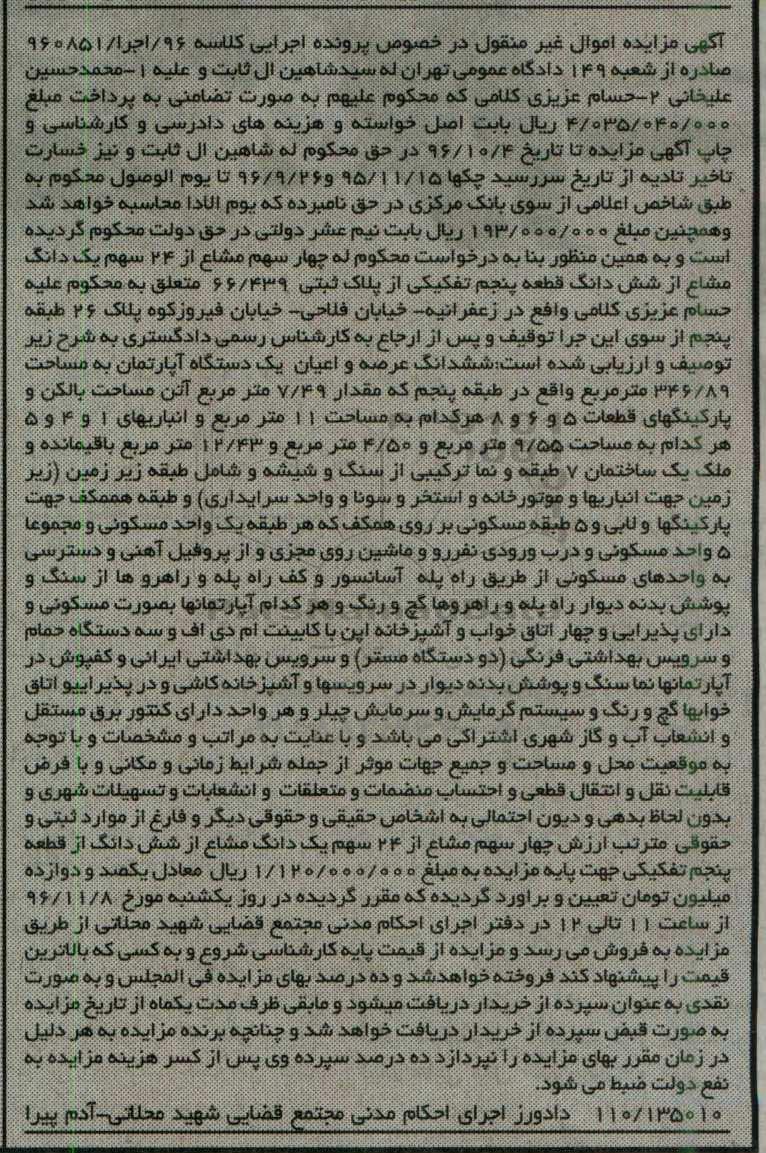 آگهی مزایده اموال غیر منقول در خصوص پرونده اجرایی کلاسه ۹۶/اجرا/۹۶۰۸۵۱
صادره از شعبه ۱۴۹ دادگاه عمومی تهران له سیدشاهین ال ثابت و علیه ۱-محمدحسین
علیخانی ۲-حسام عزیزی کلامی که محکوم علیهم به صورت تضامنی به پرداخت مبلغ
۴/۰۳۵/۰۴۰/۰۰۰ ریال بابت اصل خواسته و هزینه های دادرسی و کارشناسی و
چاپ آگهی مزایده تا تاریخ ۹۶/۱۰/۴ در حق محکوم له شاهین ال ثابت و نیز خسارت
تاخیر تادیه از تاریخ سررسید چکها ۹۵/۱۱/۱۵ و۹۶/۹/۲۶ تا یوم الوصول محکوم به
طبق شاخص اعلامی از سوی بانک مرکزی در حق نامبرده که یوم الادا محاسبه خواهد شد
وهمچنین مبلغ ۱۹۳/۰۰۰/۰۰۰ ریال بابت نیم عشر دولتی در حق دولت محکوم گردیده
است و به همین منظور بنا به درخواست محکوم له چهار سهم مشاع از ۲۴ سهم یک دانگ
مشاع از شش دانگ قطعه پنجم تفکیکی از پلاک ثبتی ۶۶/۴۳۹ متعلق به محکوم علیه
حسام عزیزی کلامی واقع در زعفرانیه- خیابان فلاحی- خیابان فیروزکوه پلاک ۲۶ طبقه
پنجم از سوی این جرا توقیف و پس از ارجاع به کارشناس رسمی دادگستری به شرح زیر
توصیف و ارزیابی شده است:ششدانگ عرصه و اعیان یک دستگاه آپارتمان به مساحت
۳۴۶/۸۹ مترمربع واقع در طبقه پنجم که مقدار ۷/۴۹ متر مربع آتن مساحت بالکن و
پارکینگهای قطعات ۵ و ۶ و ۸ هرکدام به مساحت ۱۱ متر مربع و انباریهای ۱ و ۴ و ۵
هر کدام به مساحت ۹/۵۵ متر مربع و ۴/۵۰ متر مربع و ۱۲/۴۳ متر مربع باقیمانده و
ملک یک ساختمان ۷ طبقه و نما ترکیبی از سنگ و شیشه و شامل طبقه زیر زمین (زیر
زمین جهت انباریها و موتورخانه و استخر و سونا و واحد سرایداری) و طبقه هممکف جهت
پارکینگها و لابی و ۵ طبقه مسکونی بر روی همکف که هر طبقه یک واحد مسکونی و مجموعا
۵ واحد مسکونی و درب ورودی نفررو و ماشین روی مجزی و از پروفیل آهنی و دسترسی
به واحدهای مسکونی از طریق راه پله آسانسور و کف راه پله و راهرو ها از سنگ و
پوشش بدنه دیوار راه پله و راهروها گچ و رنگ و هر کدام آپارتمانها بصورت مسکونی و
دارای پذیرایی و چهار اتاق خواب و آشپزخانه اپن با کابینت ام دی اف و سه دستگاه حمام
و سرویس بهداشتی فرنگی (دو دستگاه مستر) و سرویس بهداشتی ایرانی و کفپوش در
آپارتمانها نما سنگ و پوشش بدنه دیوار در سرویسها و آشپزخانه کاشی و در پذیراییو اتاق
خوابها گچ و رنگ و سیستم گرمایش و سرمایش چیلر و هر واحد دارای کنتور برق مستقل
و انشعاب آب و گاز شهری اشتراکی می باشد و با عنایت به مراتب و مشخصات و با توجه
به موقعیت محل و مساحت و جمیع جهات موثر از جمله شرایط زمانی و مکانی و با فرض
قابلیت نقل و انتقال قطعی و احتساب منضمات و متعلقات و انشعابات و تسهیلات شهری و
بدون لحاظ بدهی و دیون احتمالی به اشخاص حقیقی و حقوقی دیگر و فارغ از موارد ثبتی و
حقوقی مترتب ارزش چهار سهم مشاع از ۲۴ سهم یک دانگ مشاع از شش دانگ از قطعه
پنجم تفکیکی جهت پایه مزایده به مبلغ ۱/۱۲۰/۰۰۰/۰۰۰ ریال معادل یکصد و دوازده
میلیون تومان تعیین و براورد گردیده که مقرر گردیده در روز یکشنبه مورخ ۹۶/۱۱/۸
از ساعت ۱۱ تالی ۱۲ در دفتر اجرای احکام مدنی مجتمع قضایی شهید محلاتی از طریق
مزایده به فروش می رسد و مزایده از قیمت پایه کارشناسی شروع و به کسی که بالاترین
قیمت را پیشنهاد کند فروخته خواهدشد و ده درصد بهای مزایده فی المجلس و به صورت
نقدی به عنوان سپرده از خریدار دریافت میشود و مابقی ظرف مدت یکماه از تاریخ مزایده
به صورت قبض سپرده از خریدار دریافت خواهد شد و چنانچه برنده مزایده به هر دلیل
در زمان مقرر بهای مزایده را نپردازد ده درصد سپرده وی پس از کسر هزینه مزایده به
نفع دولت ضبط می شود.
۱۱۰/۱۳۵۰۱۰ دادورز اجرای احکام مدنی مجتمع قضایی شهید محلاتی-آدم پیرا